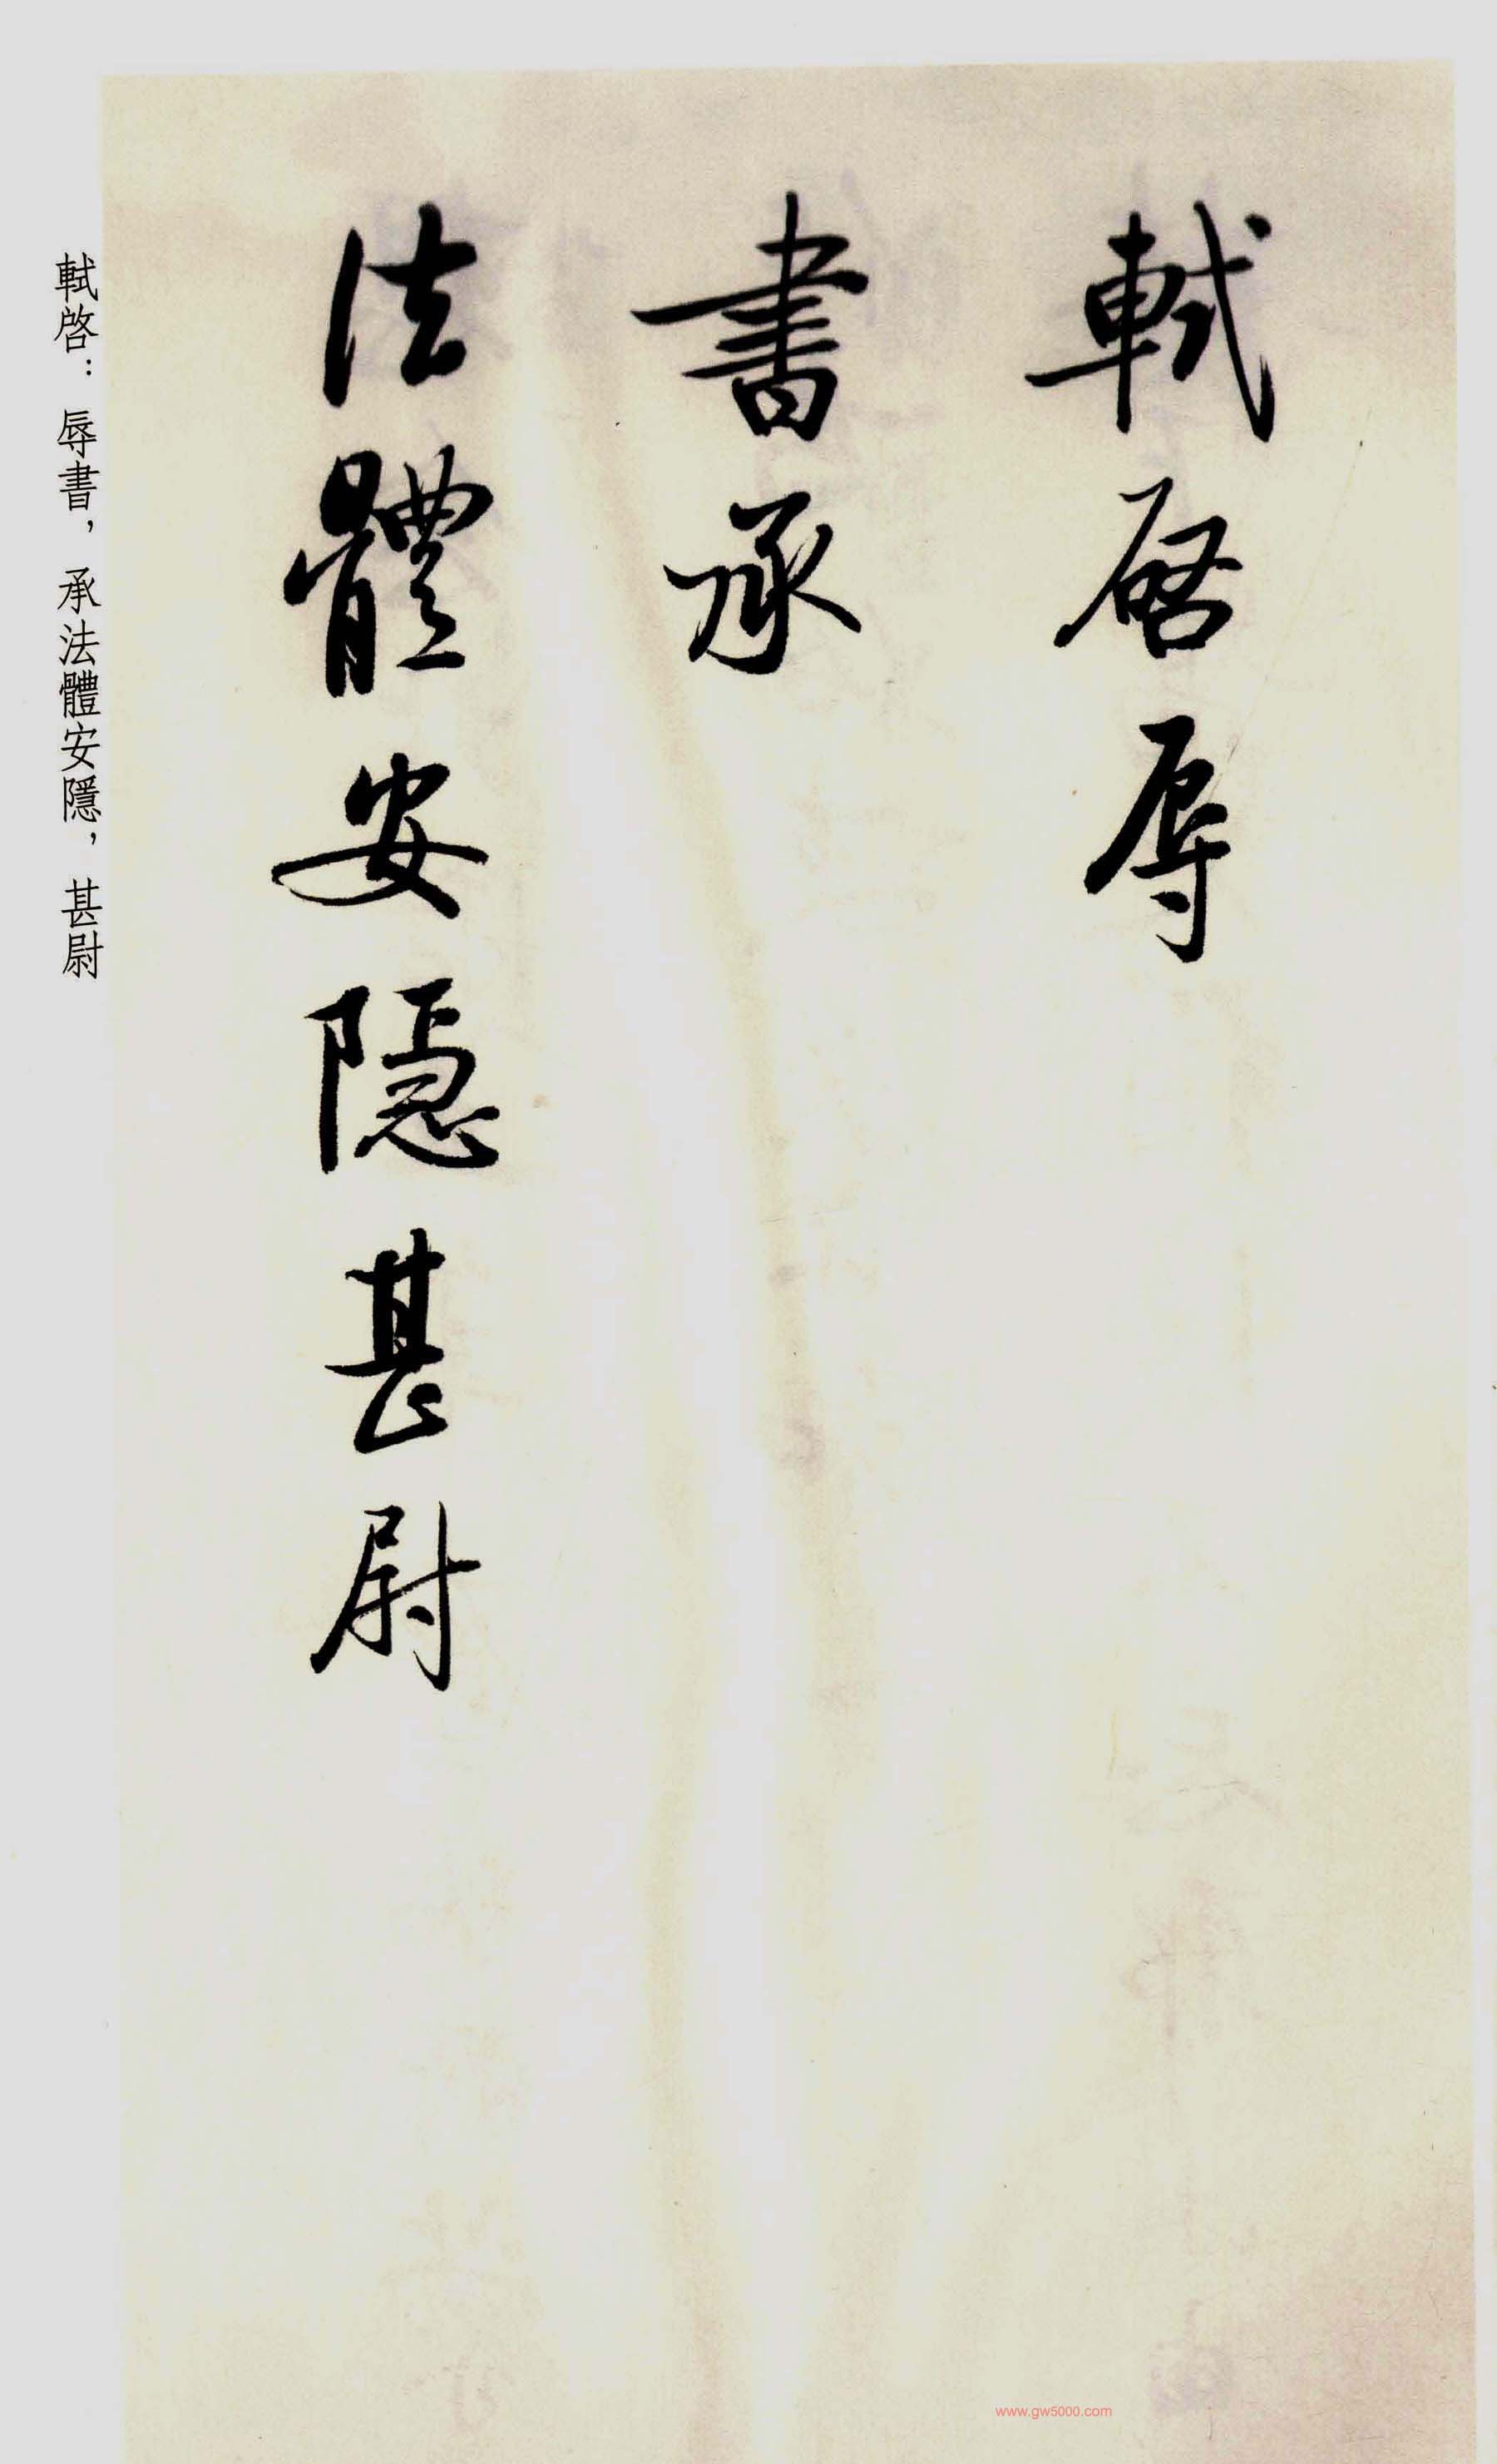 軾啓辱
書承
法體安隱甚尉
軾啓：辱書，承法體安隱，甚尉
www.gw5000.com